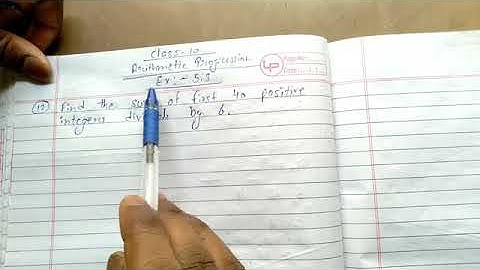 Class-10
Arithmetic Progression
Ex:- 5.3
(12) Find the sum of first 40 positive
integers divisible by 6.